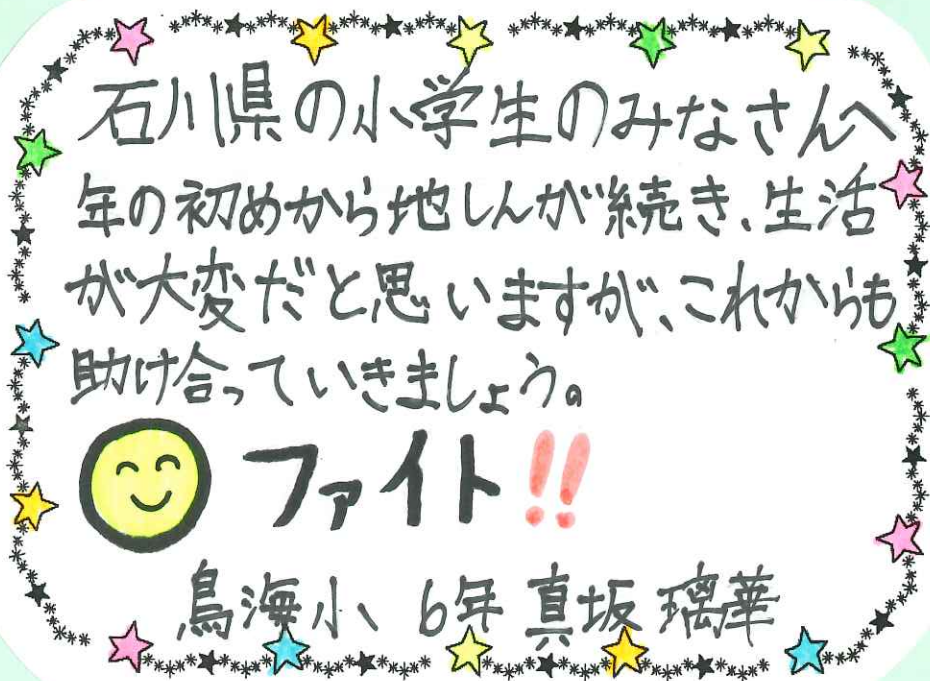 石川県の小学生のみなさんへ
年の初めから地しんが続き、生活
が大変だと思いますが、これからも
助け合っていきましょう。
ファイト!!
鳥海小 6年 真坂 璃華